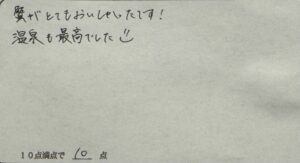 蟹がとてもおいしかったです!
温泉も最高でした
10点満点で 10 点